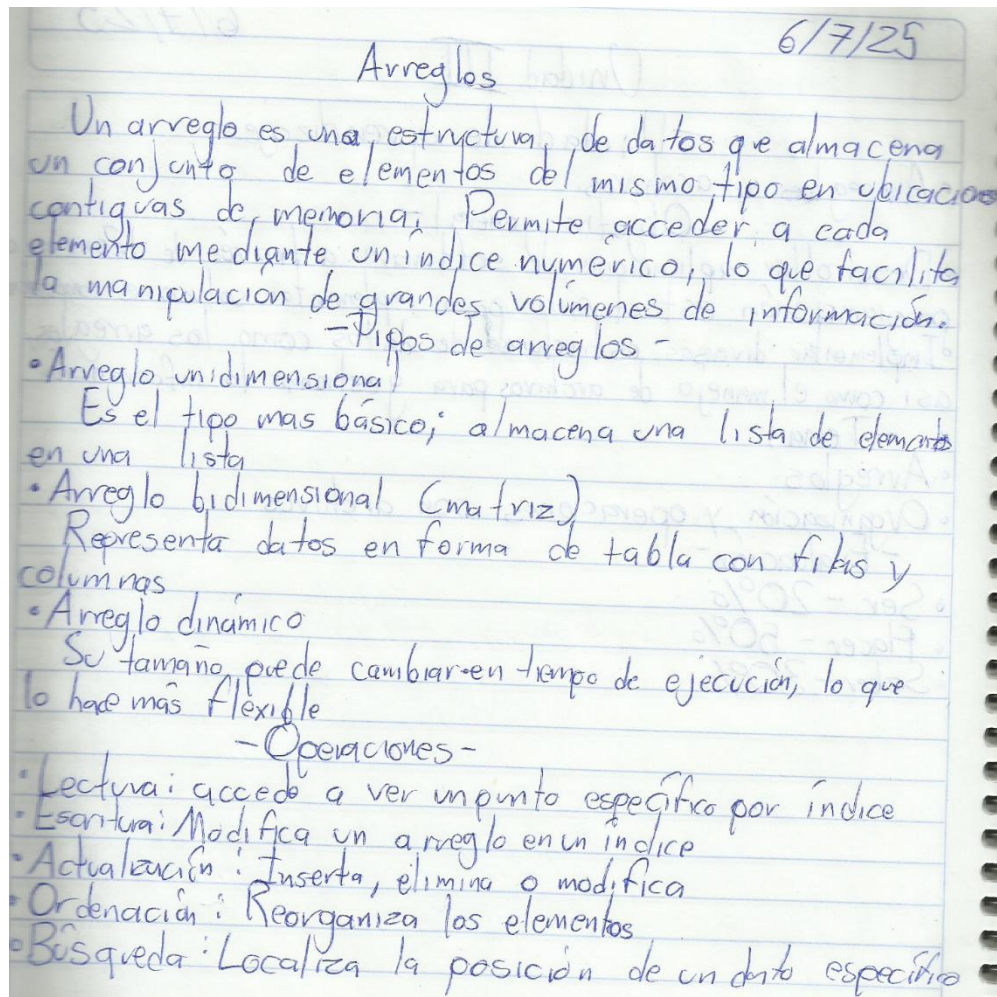 6/7/25
Arreglos
Un arreglo es una estructura de datos que almacena
un conjunto de elementos del mismo tipo en ubicaciones
contiguas de memoria; Permite acceder a cada
elemento mediante un índice numérico, lo que facilita
la manipulación de grandes volúmenes de información.
-Tipos de arreglos-
• Arreglo unidimensional
Es el tipo mas básico; almacena una lista de elementos
en una lista
• Arreglo bidimensional (matriz)
Representa datos en forma de tabla con filas y
columnas
• Arreglo dinámico
Su tamaño puede cambiar en tiempo de ejecución, lo que
lo hace más flexible
-Operaciones-
• Lectura: accede a ver un punto específico por índice
• Escritura: Modifica un arreglo en un índice
• Actualización: Inserta, elimina o modifica
• Ordenación: Reorganiza los elementos
• Búsqueda: Localiza la posición de un dato específico